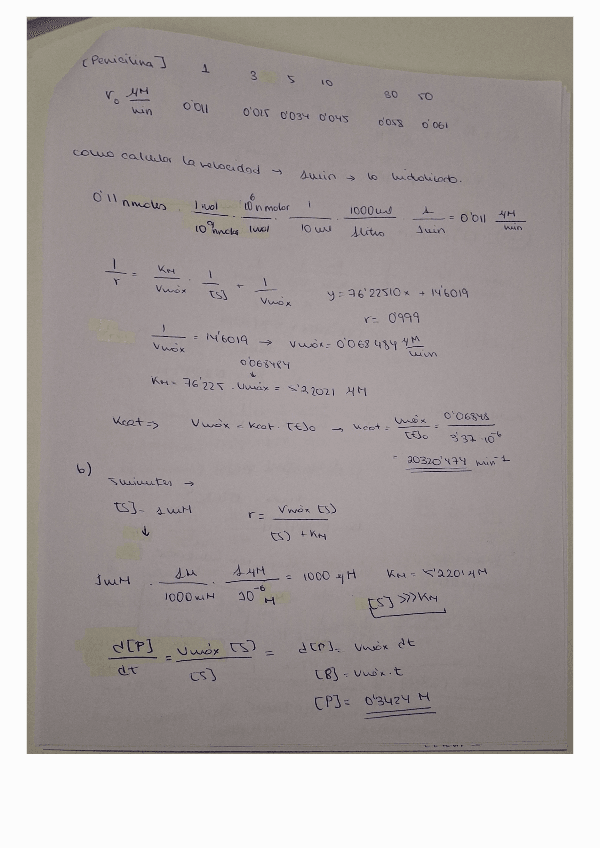 [Penicilina] 1 3 5 10 30 50
r₀ μM/min 0'011 0'025 0'034 0'045 0'058 0'061
como calcular la velocidad → 1min → lo hidrolizado.
0'11 nmoles · 1 mol/10⁹ nmoles · 10⁶ μmoles/1mol · 1/10 ml · 1000ml/1litro · 1/1min = 0'011 μM/min
1/r = KM/Vmáx · 1/[S] + 1/Vmáx y = 76'22510x + 14'6019
r = 0'999
1/Vmáx = 14'6019 → Vmáx = 0'068484 μM/min
0'068484
↓
KM = 76'225 · Vmáx = 5'22021 μM
Kcat ⇒ Vmáx = Kcat · [E]₀ → Kcat = Vmáx/[E]₀ = 0'06848/3'37·10⁻⁶
= 20320'474 min⁻¹
b)
5minutos →
[S] = 1mM r = Vmáx [S]/[S] + KM
↓
1mM · 1M/1000mM · 1μM/10⁻⁶ M = 1000 μM KM = 5'2201 μM
[S] >>> KM
d[P]/dt = Vmáx [S]/[S] = d[P] = Vmáx dt
[P] = Vmáx · t
[P] = 0'3424 M